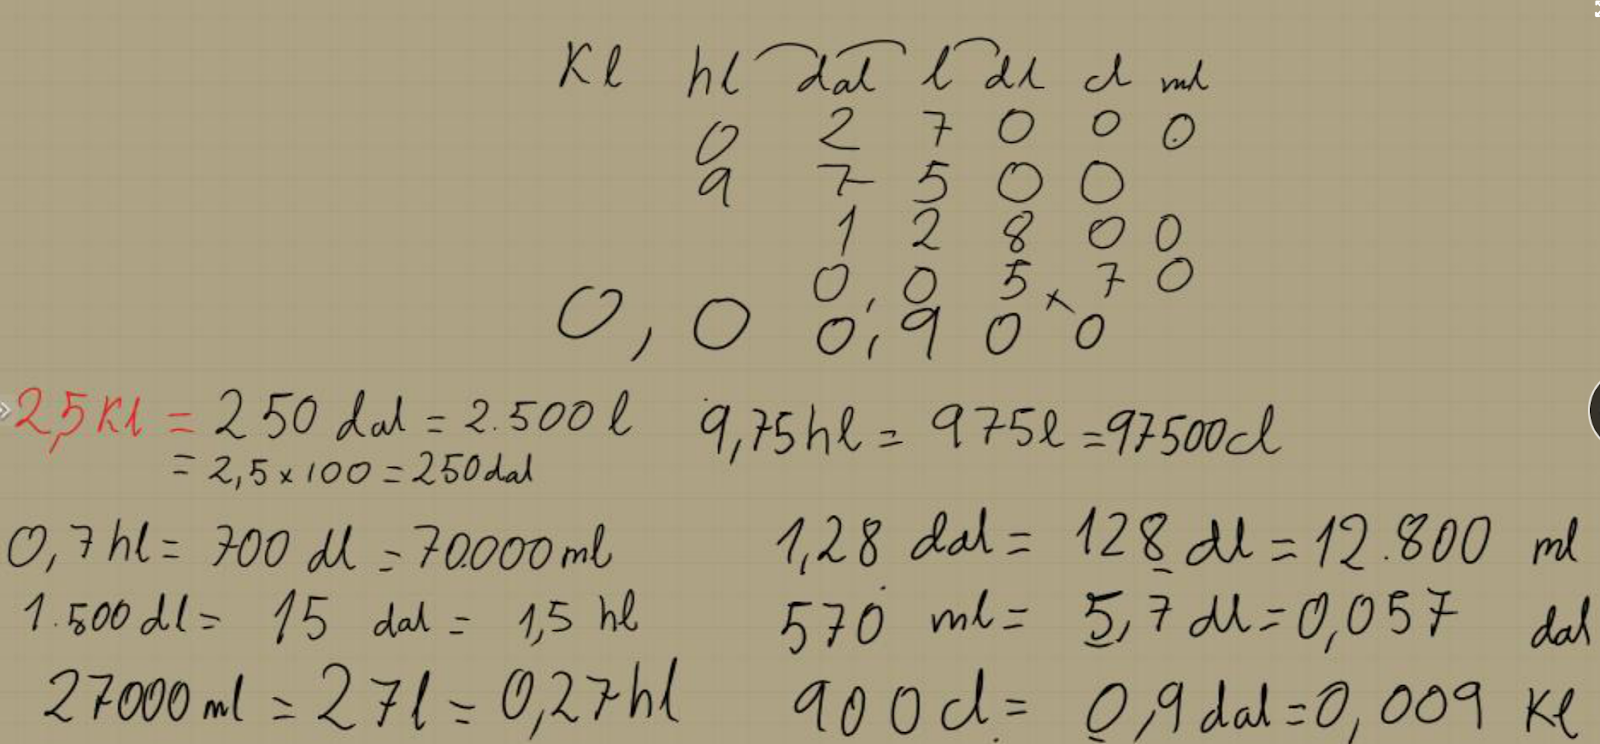 Kl hl dal l dl cl ml
0 2 7 0 0 0
9 7 5 0 0
1 2 8 0 0
0,0 5 7 0
0,0 0,9 0 0
2,5 Kl = 250 dal = 2.500 l
= 2,5 x 100 = 250 dal
9,75 hl = 975 l = 97500 cl
0,7 hl = 700 dl = 70.000 ml
1,28 dal = 128 dl = 12.800 ml
1.500 dl = 15 dal = 1,5 hl
570 ml = 5,7 dl = 0,057 dal
27000 ml = 27 l = 0,27 hl
900 cl = 0,9 dal = 0,009 Kl